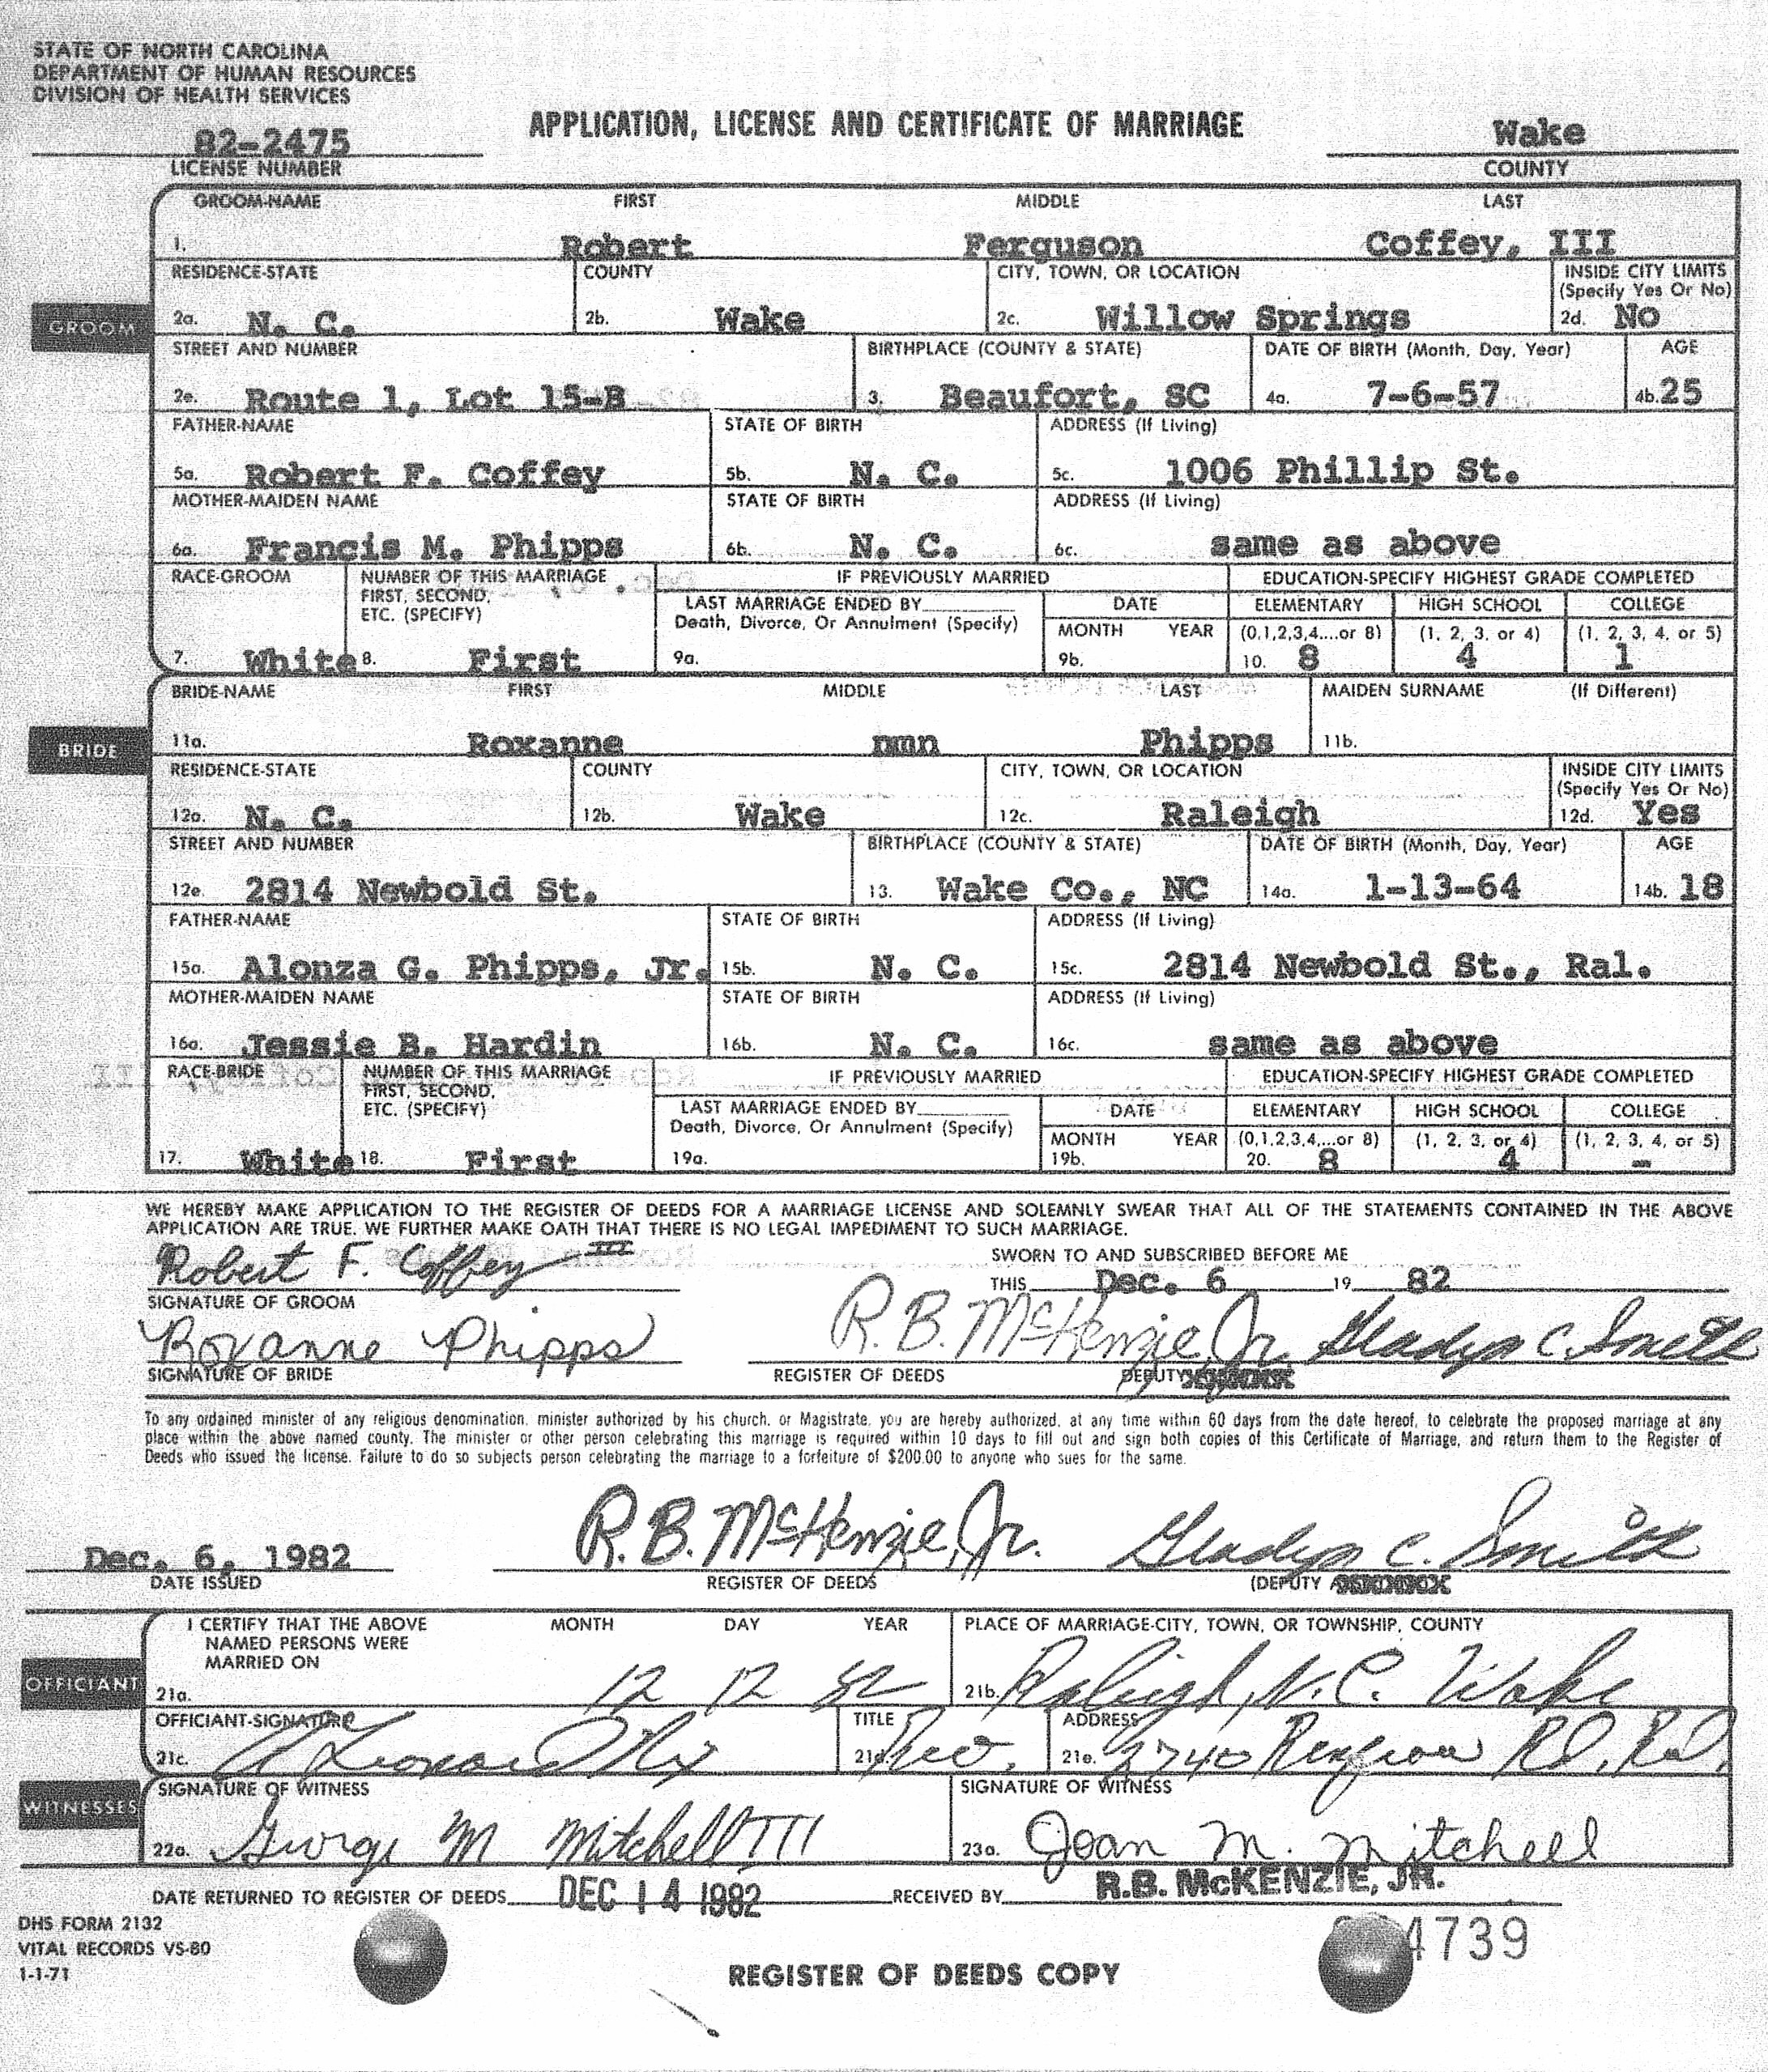 STATE OF NORTH CAROLINA
DEPARTMENT OF HUMAN RESOURCES
DIVISION OF HEALTH SERVICES
82-2475
LICENSE NUMBER
APPLICATION, LICENSE AND CERTIFICATE OF MARRIAGE
Wake
COUNTY
GROOM
GROOM-NAME FIRST MIDDLE LAST
1. Robert Ferguson Coffey, III
RESIDENCE-STATE COUNTY CITY, TOWN, OR LOCATION INSIDE CITY LIMITS
(Specify Yes Or No)
2a. N. C. 2b. Wake 2c. Willow Springs 2d. No
STREET AND NUMBER BIRTHPLACE (COUNTY & STATE) DATE OF BIRTH (Month, Day, Year) AGE
2e. Route 1, Lot 15-B 3. Beaufort, SC 4a. 7-6-57 4b. 25
FATHER-NAME STATE OF BIRTH ADDRESS (If Living)
5a. Robert F. Coffey 5b. N. C. 5c. 1006 Phillip St.
MOTHER-MAIDEN NAME STATE OF BIRTH ADDRESS (If Living)
6a. Francis M. Phipps 6b. N. C. 6c. same as above
RACE-GROOM NUMBER OF THIS MARRIAGE IF PREVIOUSLY MARRIED EDUCATION-SPECIFY HIGHEST GRADE COMPLETED
FIRST, SECOND, LAST MARRIAGE ENDED BY DATE ELEMENTARY HIGH SCHOOL COLLEGE
ETC. (SPECIFY) Death, Divorce, Or Annulment (Specify) MONTH YEAR (0,1,2,3,4....or 8) (1, 2, 3, or 4) (1, 2, 3, 4, or 5)
7. White 8. First 9a. 9b. 10. 8 4 1
BRIDE
BRIDE-NAME FIRST MIDDLE LAST MAIDEN SURNAME (If Different)
11a. Roxanne nmn Phipps 11b.
RESIDENCE-STATE COUNTY CITY, TOWN, OR LOCATION INSIDE CITY LIMITS
(Specify Yes Or No)
12a. N. C. 12b. Wake 12c. Raleigh 12d. Yes
STREET AND NUMBER BIRTHPLACE (COUNTY & STATE) DATE OF BIRTH (Month, Day, Year) AGE
12e. 2814 Newbold St. 13. Wake Co., NC 14a. 1-13-64 14b. 18
FATHER-NAME STATE OF BIRTH ADDRESS (If Living)
15a. Alonza G. Phipps, Jr. 15b. N. C. 15c. 2814 Newbold St., Ral.
MOTHER-MAIDEN NAME STATE OF BIRTH ADDRESS (If Living)
16a. Jessie B. Hardin 16b. N. C. 16c. same as above
RACE-BRIDE NUMBER OF THIS MARRIAGE IF PREVIOUSLY MARRIED EDUCATION-SPECIFY HIGHEST GRADE COMPLETED
FIRST, SECOND, LAST MARRIAGE ENDED BY DATE ELEMENTARY HIGH SCHOOL COLLEGE
ETC. (SPECIFY) Death, Divorce, Or Annulment (Specify) MONTH YEAR (0,1,2,3,4,...or 8) (1, 2, 3, or 4) (1, 2, 3, 4, or 5)
17. White 18. First 19a. 19b. 20. 8 4 -
WE HEREBY MAKE APPLICATION TO THE REGISTER OF DEEDS FOR A MARRIAGE LICENSE AND SOLEMNLY SWEAR THAT ALL OF THE STATEMENTS CONTAINED IN THE ABOVE
APPLICATION ARE TRUE. WE FURTHER MAKE OATH THAT THERE IS NO LEGAL IMPEDIMENT TO SUCH MARRIAGE.
Robert F. Coffey III SWORN TO AND SUBSCRIBED BEFORE ME
THIS Dec. 6 19 82
SIGNATURE OF GROOM
Roxanne Phipps R. B. McKenzie, Jr. Gladys C. Smith
SIGNATURE OF BRIDE REGISTER OF DEEDS DEPUTY
To any ordained minister of any religious denomination, minister authorized by his church, or Magistrate, you are hereby authorized, at any time within 60 days from the date hereof, to celebrate the proposed marriage at any
place within the above named county. The minister or other person celebrating this marriage is required within 10 days to fill out and sign both copies of this Certificate of Marriage, and return them to the Register of
Deeds who issued the license. Failure to do so subjects person celebrating the marriage to a forfeiture of $200.00 to anyone who sues for the same.
Dec. 6, 1982 R. B. McKenzie, Jr. Gladys C. Smith
DATE ISSUED REGISTER OF DEEDS (DEPUTY
OFFICIANT
I CERTIFY THAT THE ABOVE MONTH DAY YEAR PLACE OF MARRIAGE-CITY, TOWN, OR TOWNSHIP, COUNTY
NAMED PERSONS WERE
MARRIED ON
21a. 12 12 82 21b. Raleigh, N.C. Wake
OFFICIANT-SIGNATURE TITLE ADDRESS
21c. Leonard 21d. Rev. 21e. 2740 Renfrow Rd. Ral.
WITNESSES
SIGNATURE OF WITNESS SIGNATURE OF WITNESS
22a. George M Mitchell III 23a. Joan M. Mitchell
DATE RETURNED TO REGISTER OF DEEDS DEC 14 1982 RECEIVED BY R.B. McKENZIE, JR.
DHS FORM 2132
VITAL RECORDS VS-80
1-1-71
REGISTER OF DEEDS COPY
4739